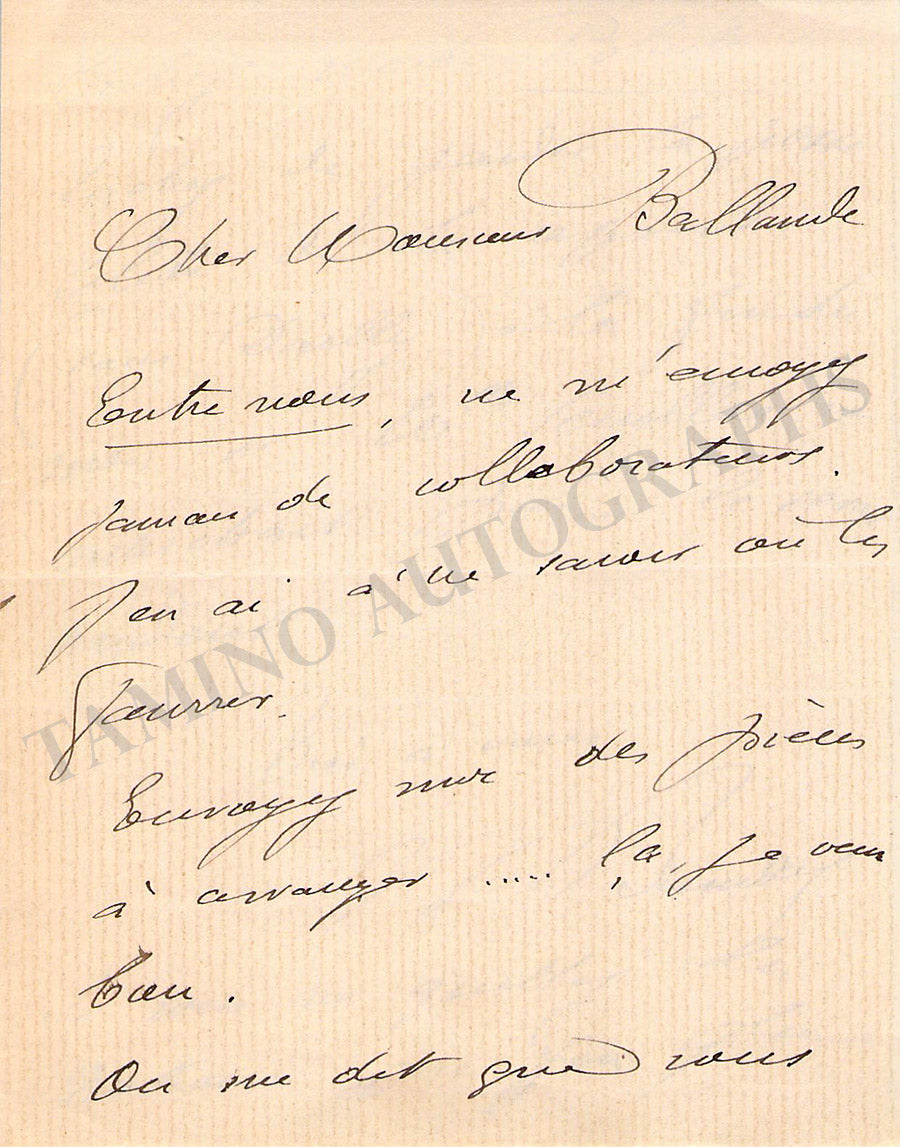 Cher Monsieur Ballande
Entre nous, ne m'envoyez
jamais de collaborateurs.
J'en ai à ne savoir où les
fourrer.
Envoyez moi des pièces
à arranger .... ça, je veux
bien.
On me dit que vous
TAMINO AUTOGRAPHS